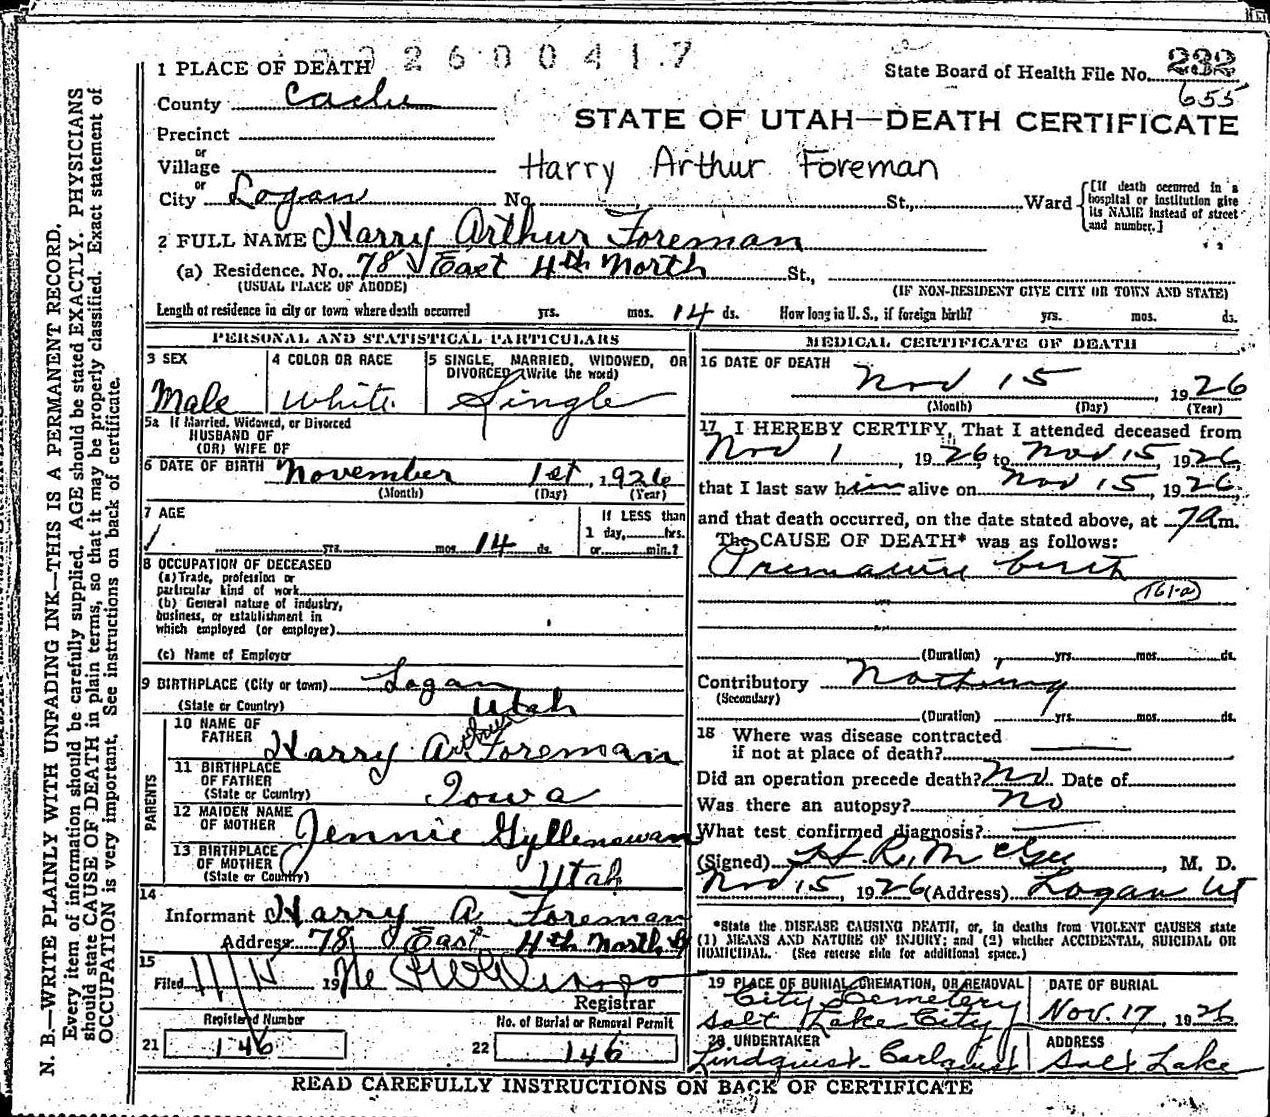 9 2 6 0 0 4 1 7
1 PLACE OF DEATH
State Board of Health File No. 232
655
County Cache
STATE OF UTAH—DEATH CERTIFICATE
Precinct
or
Village
Harry Arthur Foreman
or
City Logan No. St., Ward
[If death occurred in a hospital or institution give its NAME instead of street and number.]
2 FULL NAME Harry Arthur Foreman
(a) Residence. No. 78 East 4th North St.,
(USUAL PLACE OF ABODE) (IF NON-RESIDENT GIVE CITY OR TOWN AND STATE)
Length of residence in city or town where death occurred yrs. mos. 14 ds. How long in U. S., if foreign birth? yrs. mos. ds.
PERSONAL AND STATISTICAL PARTICULARS
3 SEX
Male
4 COLOR OR RACE
White
5 SINGLE, MARRIED, WIDOWED, OR
DIVORCED (Write the word)
Single
5a If Married, Widowed, or Divorced
HUSBAND OF
(OR) WIFE OF
6 DATE OF BIRTH November 1st, 1926
(Month) (Day) (Year)
7 AGE
yrs. mos. 14 ds.
If LESS than
1 day, hrs.
or min.?
8 OCCUPATION OF DECEASED
(a) Trade, profession or
particular kind of work
(b) General nature of industry,
business, or establishment in
which employed (or employer)
(c) Name of Employer
9 BIRTHPLACE (City or town) Logan
(State or Country) Utah
PARENTS
10 NAME OF
FATHER Harry Arthur Foreman
11 BIRTHPLACE
OF FATHER
(State or Country) Iowa
12 MAIDEN NAME
OF MOTHER Jennie Gyllenswan
13 BIRTHPLACE
OF MOTHER
(State or Country) Utah
14
Informant Harry A Foreman
Address 78 East 4th North
15
Filed 11/15 19
Registrar
Registered Number
21 146
No. of Burial or Removal Permit
22 146
MEDICAL CERTIFICATE OF DEATH
16 DATE OF DEATH
Nov 15 1926
(Month) (Day) (Year)
17 I HEREBY CERTIFY, That I attended deceased from
Nov 1, 1926, to Nov 15, 1926,
that I last saw him alive on Nov 15, 1926,
and that death occurred, on the date stated above, at 7am.
The CAUSE OF DEATH* was as follows:
Premature birth
(161-a)
(Duration) yrs. mos. ds.
Contributory Nothing
(Secondary)
(Duration) yrs. mos. ds.
18 Where was disease contracted
if not at place of death?
Did an operation precede death? No. Date of
Was there an autopsy? no
What test confirmed diagnosis?
(Signed) H. R. McGee, M. D.
Nov 15, 1926 (Address) Logan Ut
*State the DISEASE CAUSING DEATH, or, in deaths from VIOLENT CAUSES state
(1) MEANS AND NATURE OF INJURY; and (2) whether ACCIDENTAL, SUICIDAL OR
HOMICIDAL. (See reverse side for additional space.)
19 PLACE OF BURIAL, CREMATION, OR REMOVAL
City Cemetery
Salt Lake City
DATE OF BURIAL
Nov. 17, 1926
20 UNDERTAKER
Lindquist-Carlquist
ADDRESS
Salt Lake
READ CAREFULLY INSTRUCTIONS ON BACK OF CERTIFICATE
N. B.—WRITE PLAINLY WITH UNFADING INK—THIS IS A PERMANENT RECORD.
Every item of information should be carefully supplied. AGE should be stated EXACTLY. PHYSICIANS
should state CAUSE OF DEATH in plain terms, so that it may be properly classified. Exact statement of
OCCUPATION is very important. See instructions on back of certificate.